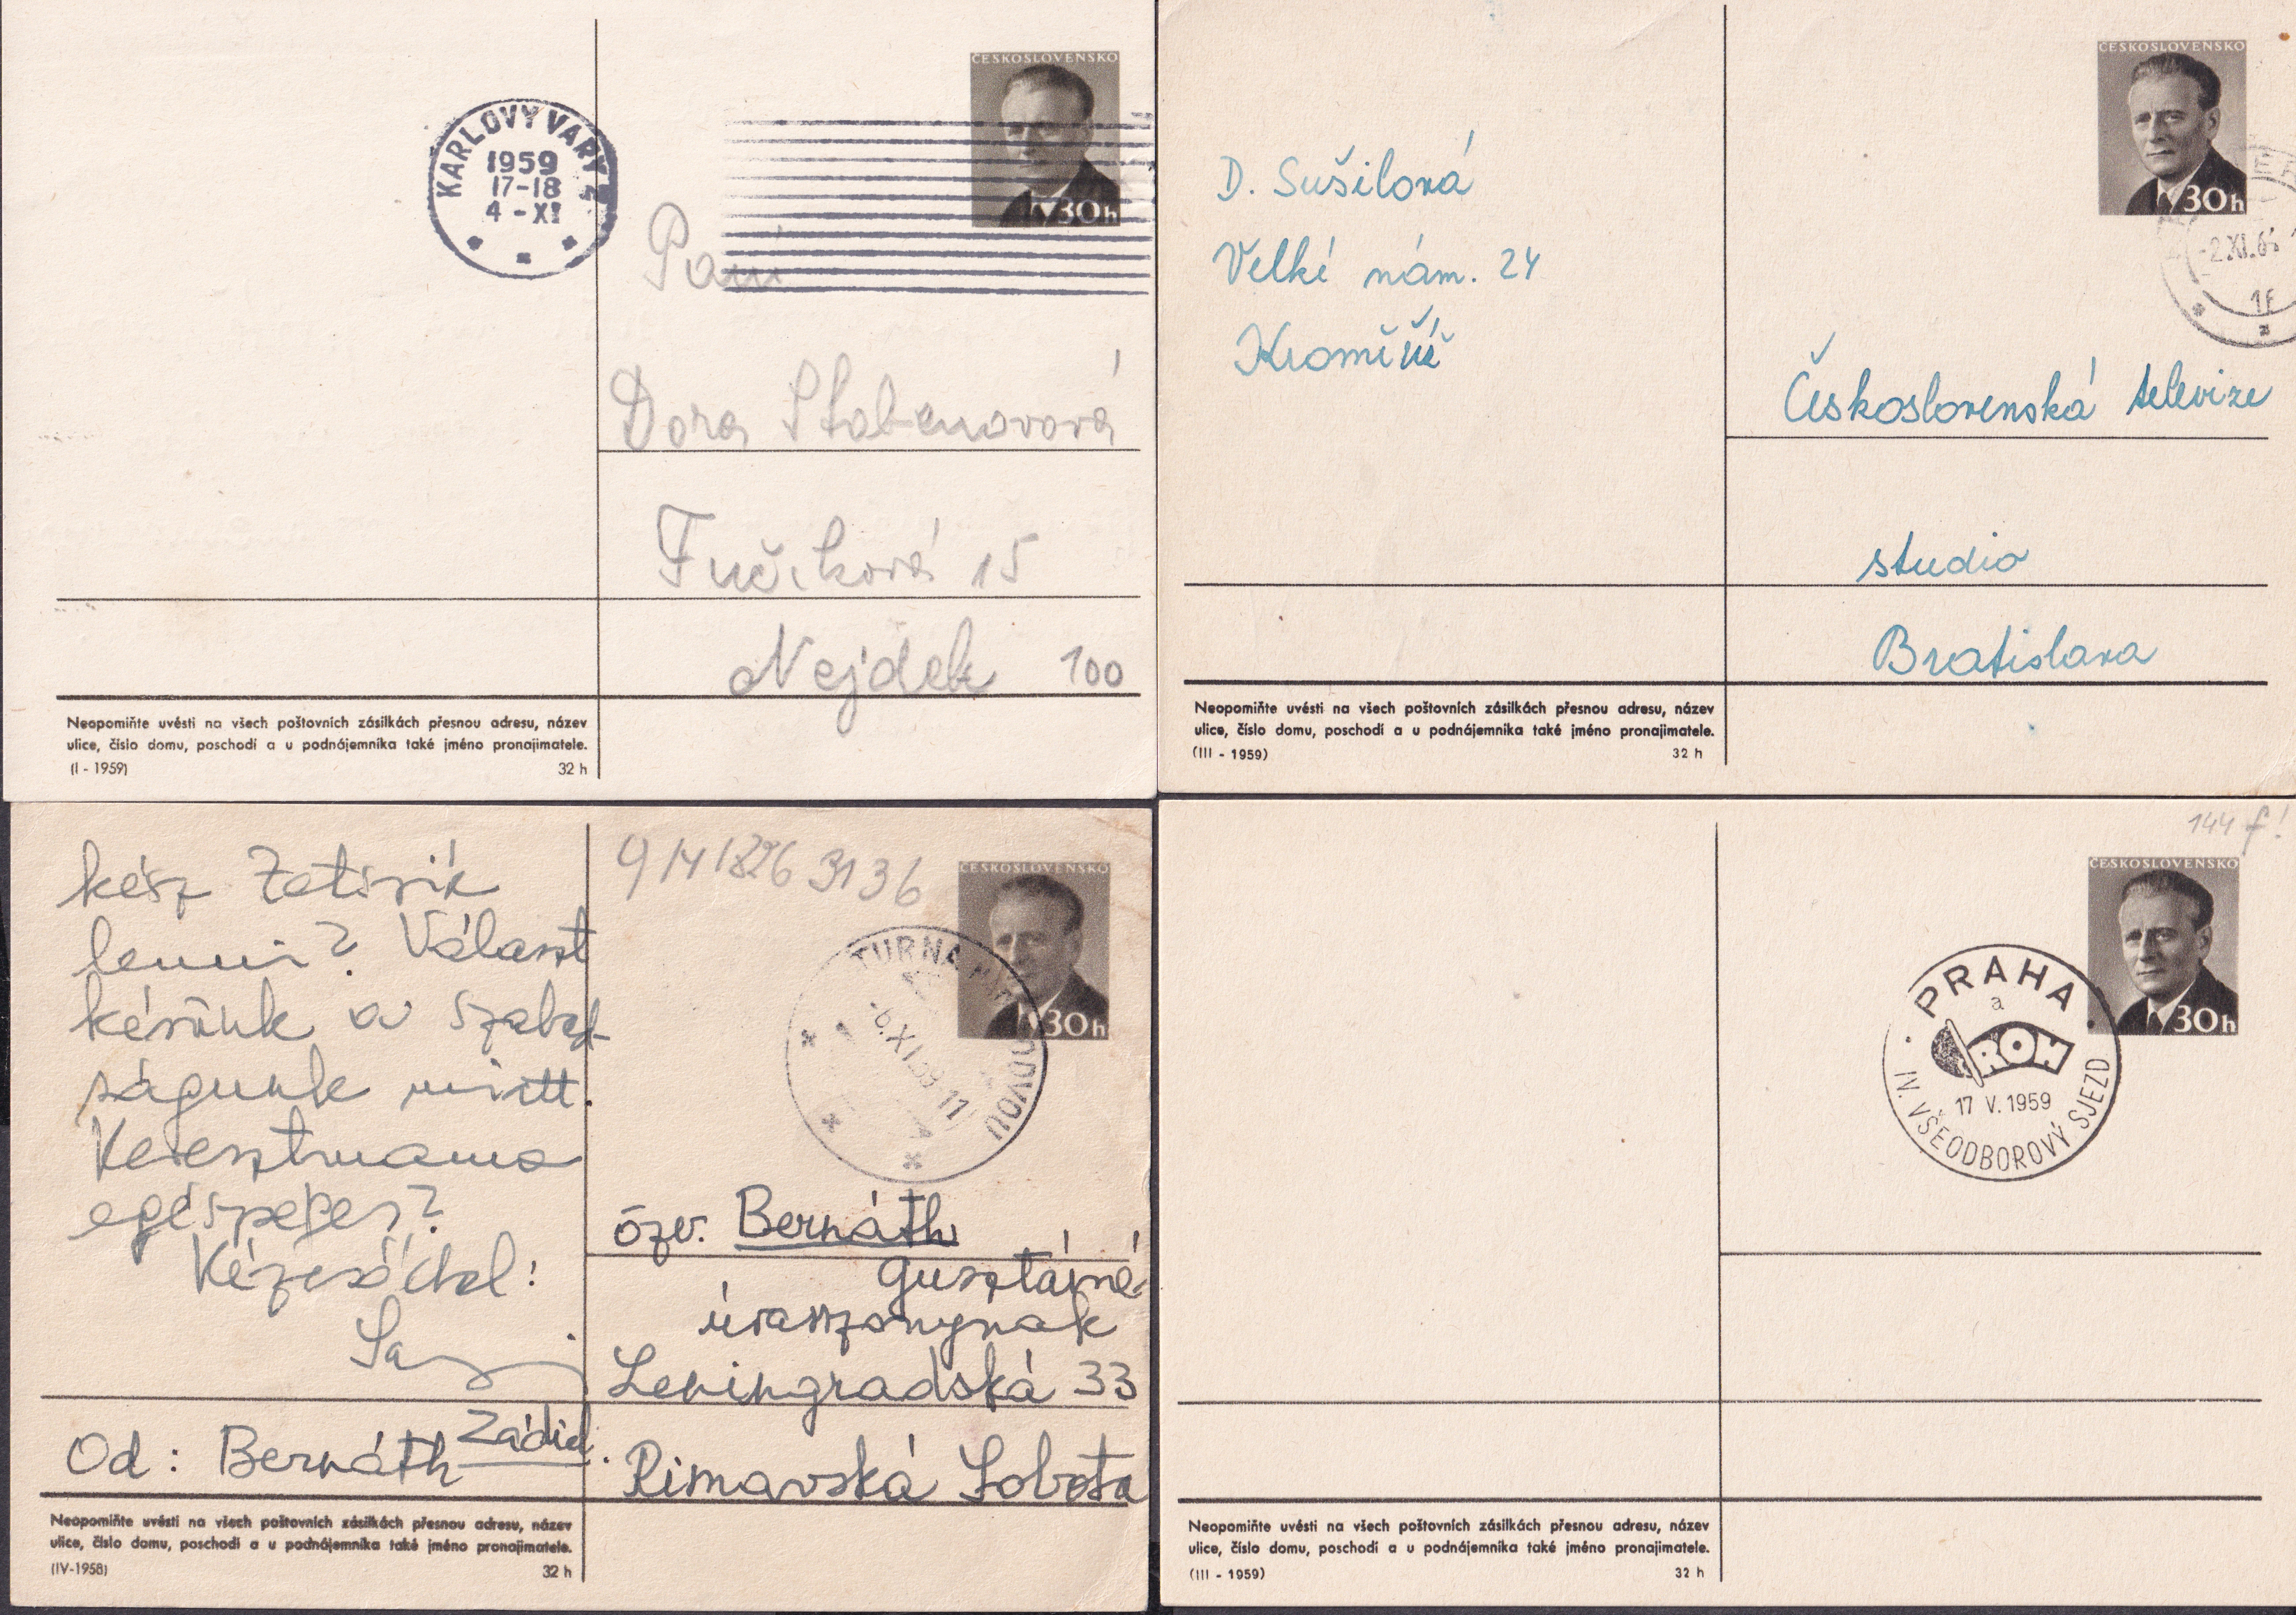 ČESKOSLOVENSKO
30h
KARLOVY VARY 2
1959
17-18
4 - XI
Paní
Dora Stobenovová
Fučíková 15
Nejdek 100
Neopomiňte uvésti na všech poštovních zásilkách přesnou adresu, název
ulice, číslo domu, poschodí a u podnájemníka také jméno pronajimatele.
(I - 1959) 32 h
ČESKOSLOVENSKO
30h
-2.XI.6
D. Sušilová
Velké nám. 24
Kroměříž
Československá televize
studio
Bratislava
Neopomiňte uvésti na všech poštovních zásilkách přesnou adresu, název
ulice, číslo domu, poschodí a u podnájemníka také jméno pronajimatele.
(III - 1959) 32 h
kész
lenni? Választ
kérünk a szabad-
ságunk miatt.
Keresztmama
egészséges?
Kézcsókkal:
Od: Bernáth Zádiel.
Neopomiňte uvésti na všech poštovních zásilkách přesnou adresu, název
ulice, číslo domu, poschodí a u podnájemníka také jméno pronajimatele.
(IV-1958) 32 h
3136
ČESKOSLOVENSKO
30h
TURŇA NAD BODVOU
-6.XI.59-11
özv. Bernáth
Gusztávné
úrasszonynak
Leningradská 33
Rimavská Sobota
144 f!
ČESKOSLOVENSKO
30h
PRAHA
a
ROH
17 V. 1959
IV. VŠEODBOROVÝ SJEZD
Neopomiňte uvésti na všech poštovních zásilkách přesnou adresu, název
ulice, číslo domu, poschodí a u podnájemníka také jméno pronajimatele.
(III - 1959) 32 h